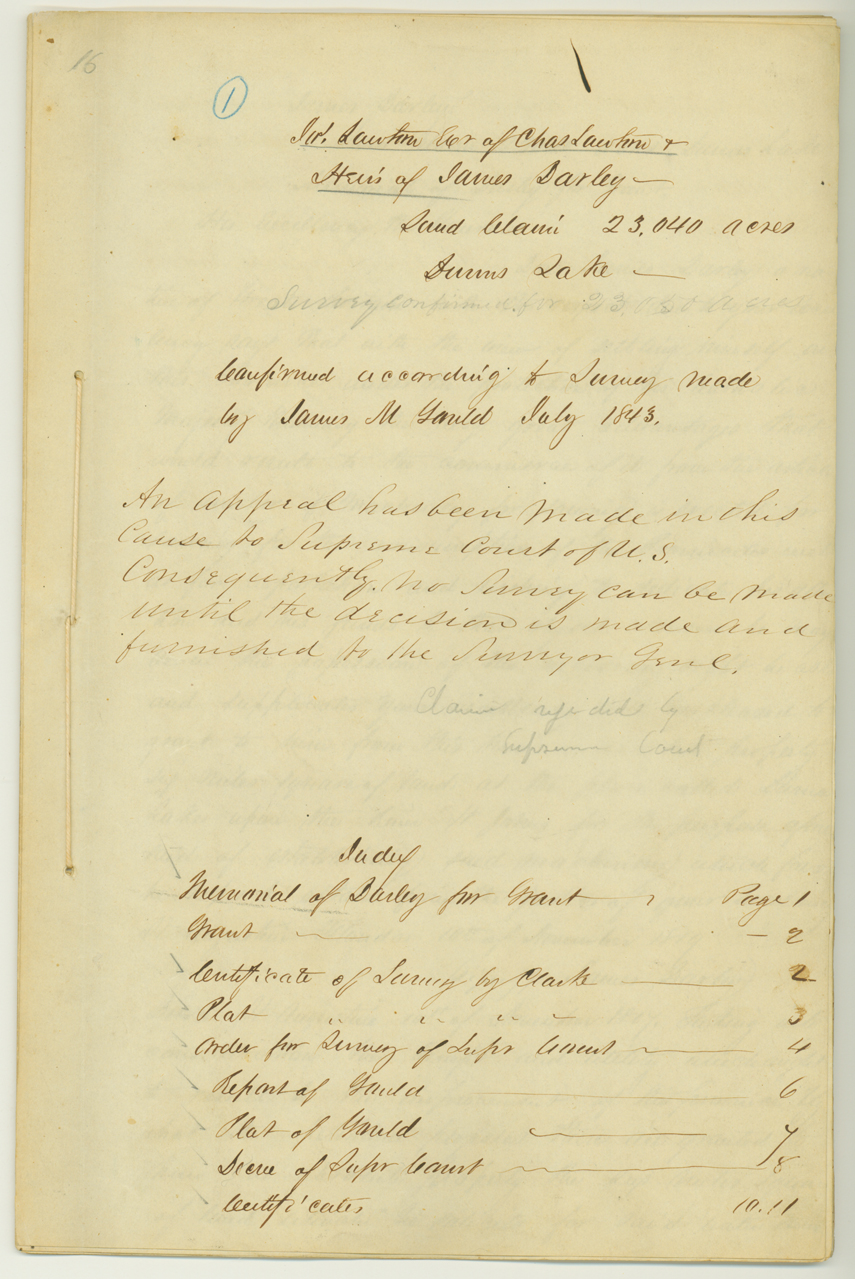 16
1
Jno. Lawton Exr of Chas Lawton &
Heirs of James Darley
Land Claim 23,040 acres
Dunns Lake
Survey confirmed for 23,040 Acres
Confirmed according to Survey made
by James M Gould July 1843.
An Appeal has been made in this
Cause to Supreme Court of U.S.
Consequently no Survey can be made
until the decision is made and
furnished to the Surveyor Genl.
Claim rejected by
Supreme Court
Index
Memorial of Darley for Grant Page 1
Grant — 2
Certificate of Survey by Clarke 2
Plat " " " " 3
order for Survey of Supr Court 4
Report of Gould 6
Plat of Gould 7
Decree of Supr Court 8
Certificates 10.11